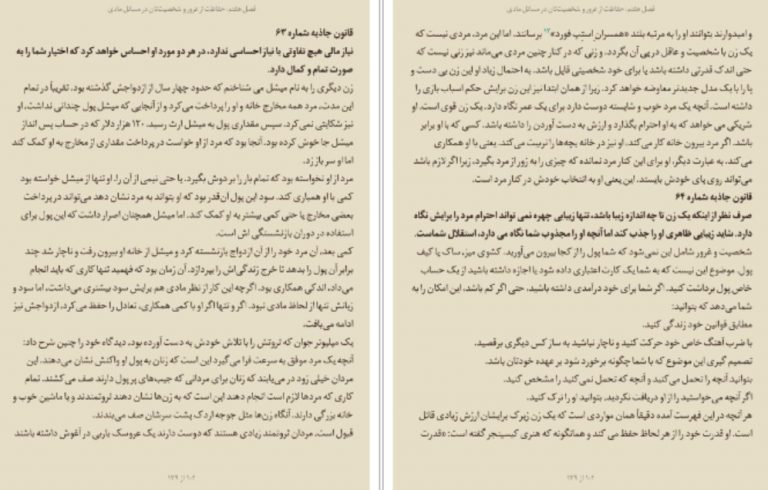 فصل هشتم: حفاظت از غرور و شخصیتتان در مسائل مادی
و امیدوارند بتوانند او را به مرتبه بلند «همسران استپ فورد» برسانند. اما این مرد، مردی نیست که
یک زن با شخصیت و عاقل در پی آن بگردد. و زنی که در کنار چنین مردی می‌ماند نیز زنی نیست که
حتی اندک قدرتی داشته باشد یا برای خود شخصیتی قایل باشد. به احتمال زیاد او این زن بی دست و
پا را با یک مدل جدیدتر معاوضه خواهد کرد. زیرا از همان ابتدا نیز این زن برایش حکم اسباب بازی را
داشته است. آنچه یک مرد خوب و شایسته دوست دارد برای یک عمر نگاه دارد، یک زن قوی است. او
شریکی می خواهد که به او احترام بگذارد و ارزش به دست آوردن را داشته باشد. کسی که با او برابر
باشد. اگر مرد بیرون خانه کار می‌کند، او نیز در خانه بچه‌ها را تربیت می کند. یعنی با او همکاری
می‌کند. به عبارت دیگر، او برای این کنار مرد نمانده که چیزی را به زور از مرد بگیرد، زیرا اگر لازم باشد
می‌تواند روی پای خودش بایستد. این یعنی او به انتخاب خودش در کنار مرد است.
قانون جاذبه شماره ۶۴
صرف نظر از اینکه یک زن تا چه اندازه زیبا باشد، تنها زیبایی چهره نمی تواند احترام مرد را برایش نگاه
دارد. شاید زیبایی ظاهری او را جذب کند اما آنچه او را مجذوب شما نگاه می دارد، استقلال شماست.
شخصیت و غرور شامل این نمی‌شود که شما پول را از کجا بیرون می‌آورید. کشوی میز، ساک یا کیف
پول. موضوع این نیست که به شما یک کارت اعتباری داده شود یا اجازه داشته باشید از یک حساب
خاص پول برداشت کنید. اگر شما برای خود درآمدی داشته باشید، حتی اگر کم باشد، این امکان را به
شما می‌دهد که بتوانید:
مطابق قوانین خود زندگی کنید.
با ضرب آهنگ خاص خود حرکت کنید و ناچار نباشید به ساز کس دیگری برقصید.
تصمیم گیری این موضوع که با شما چگونه برخورد شود بر عهده خودتان باشد.
بتوانید آنچه را تحمل می کنید و آنچه که تحمل نمی کنید را مشخص کنید.
اگر آنچه می‌خواستید را از او دریافت نکردید. بتوانید او را ترک کنید.
هر آنچه در این فهرست آمده دقیقاً همان مواردی است که یک زن زیرک برایشان ارزش زیادی قائل
است. او قدرت خود را از هر لحاظ حفظ می کند و همانگونه که هنری کیسینجر گفته است: «قدرت
فصل هشتم: حفاظت از غرور و شخصیتتان در مسائل مادی
قانون جاذبه شماره ۶۳
نیاز مالی هیچ تفاوتی با نیاز احساسی ندارد، در هر دو مورد او احساس خواهد کرد که اختیار شما را به
صورت تمام و کمال دارد.
زن دیگری را به نام میشل می شناختم که حدود چهار سال از ازدواجش گذشته بود. تقریباً در تمام
این مدت، مرد همه مخارج خانه و او را پرداخت می‌کرد و از آنجایی که میشل پول چندانی نداشت، او
نیز شکایتی نمی‌کرد. سپس مقداری پول به میشل ارث رسید. ۱۲۰ هزار دلار که در حساب پس انداز
میشل جا خوش کرده بود. آنجا بود که مرد از او خواست در پرداخت مقداری از مخارج به او کمک کند
اما او سر باز زد.
مرد از او نخواسته بود که تمام بار را بر دوش بگیرد. یا حتی نیمی از آن را. او تنها از میشل خواسته بود
کمی با او همیاری کند. سود این پول آن‌قدر بود که او بتواند به مرد نشان دهد می‌تواند در پرداخت
بعضی مخارج یا حتی کمی بیشتر به او کمک کند. اما میشل همچنان اصرار داشت که این پول برای
استفاده در دوران بازنشستگی اش است.
کمی بعد، آن مرد خود را از آن ازدواج بازنشسته کرد و میشل از خانه او بیرون رفت و ناچار شد چند
برابر آن پول را بدهد تا خرج زندگی‌اش را بپردازد. آن زمان بود که فهمید تنها کاری که باید انجام
می‌داد، اندکی همکاری بود. اگرچه این کار از نظر مادی هم برایش سود بیشتری می‌داشت، اما سود و
زیانش تنها از لحاظ مادی نبود. اگر و تنها اگر او با کمی همکاری، تعادل را حفظ می‌کرد، ازدواجش نیز
ادامه می‌یافت.
یک میلیونر جوان که ثروتش را با تلاش خودش به دست آورده بود، دیدگاه خود را چنین شرح داد:
آنچه یک مرد موفق به سرعت فرا می‌گیرد این است که زنان به پول او واکنش نشان می‌دهند. این
مردان خیلی زود در می‌یابند که زنان برای مردانی که جیب‌های پر پول دارند صف می کشند. تمام
کاری که مردها لازم است انجام دهند این است که به زن‌ها نشان دهند ثروتمندند و یا ماشین خوب و
خانه بزرگی دارند. آنگاه زن‌ها مثل جوجه اردک پشت سرشان صف می‌بندند.
قبول است. مردان ثروتمند زیادی هستند که دوست دارند یک عروسک باربی در آغوش داشته باشند